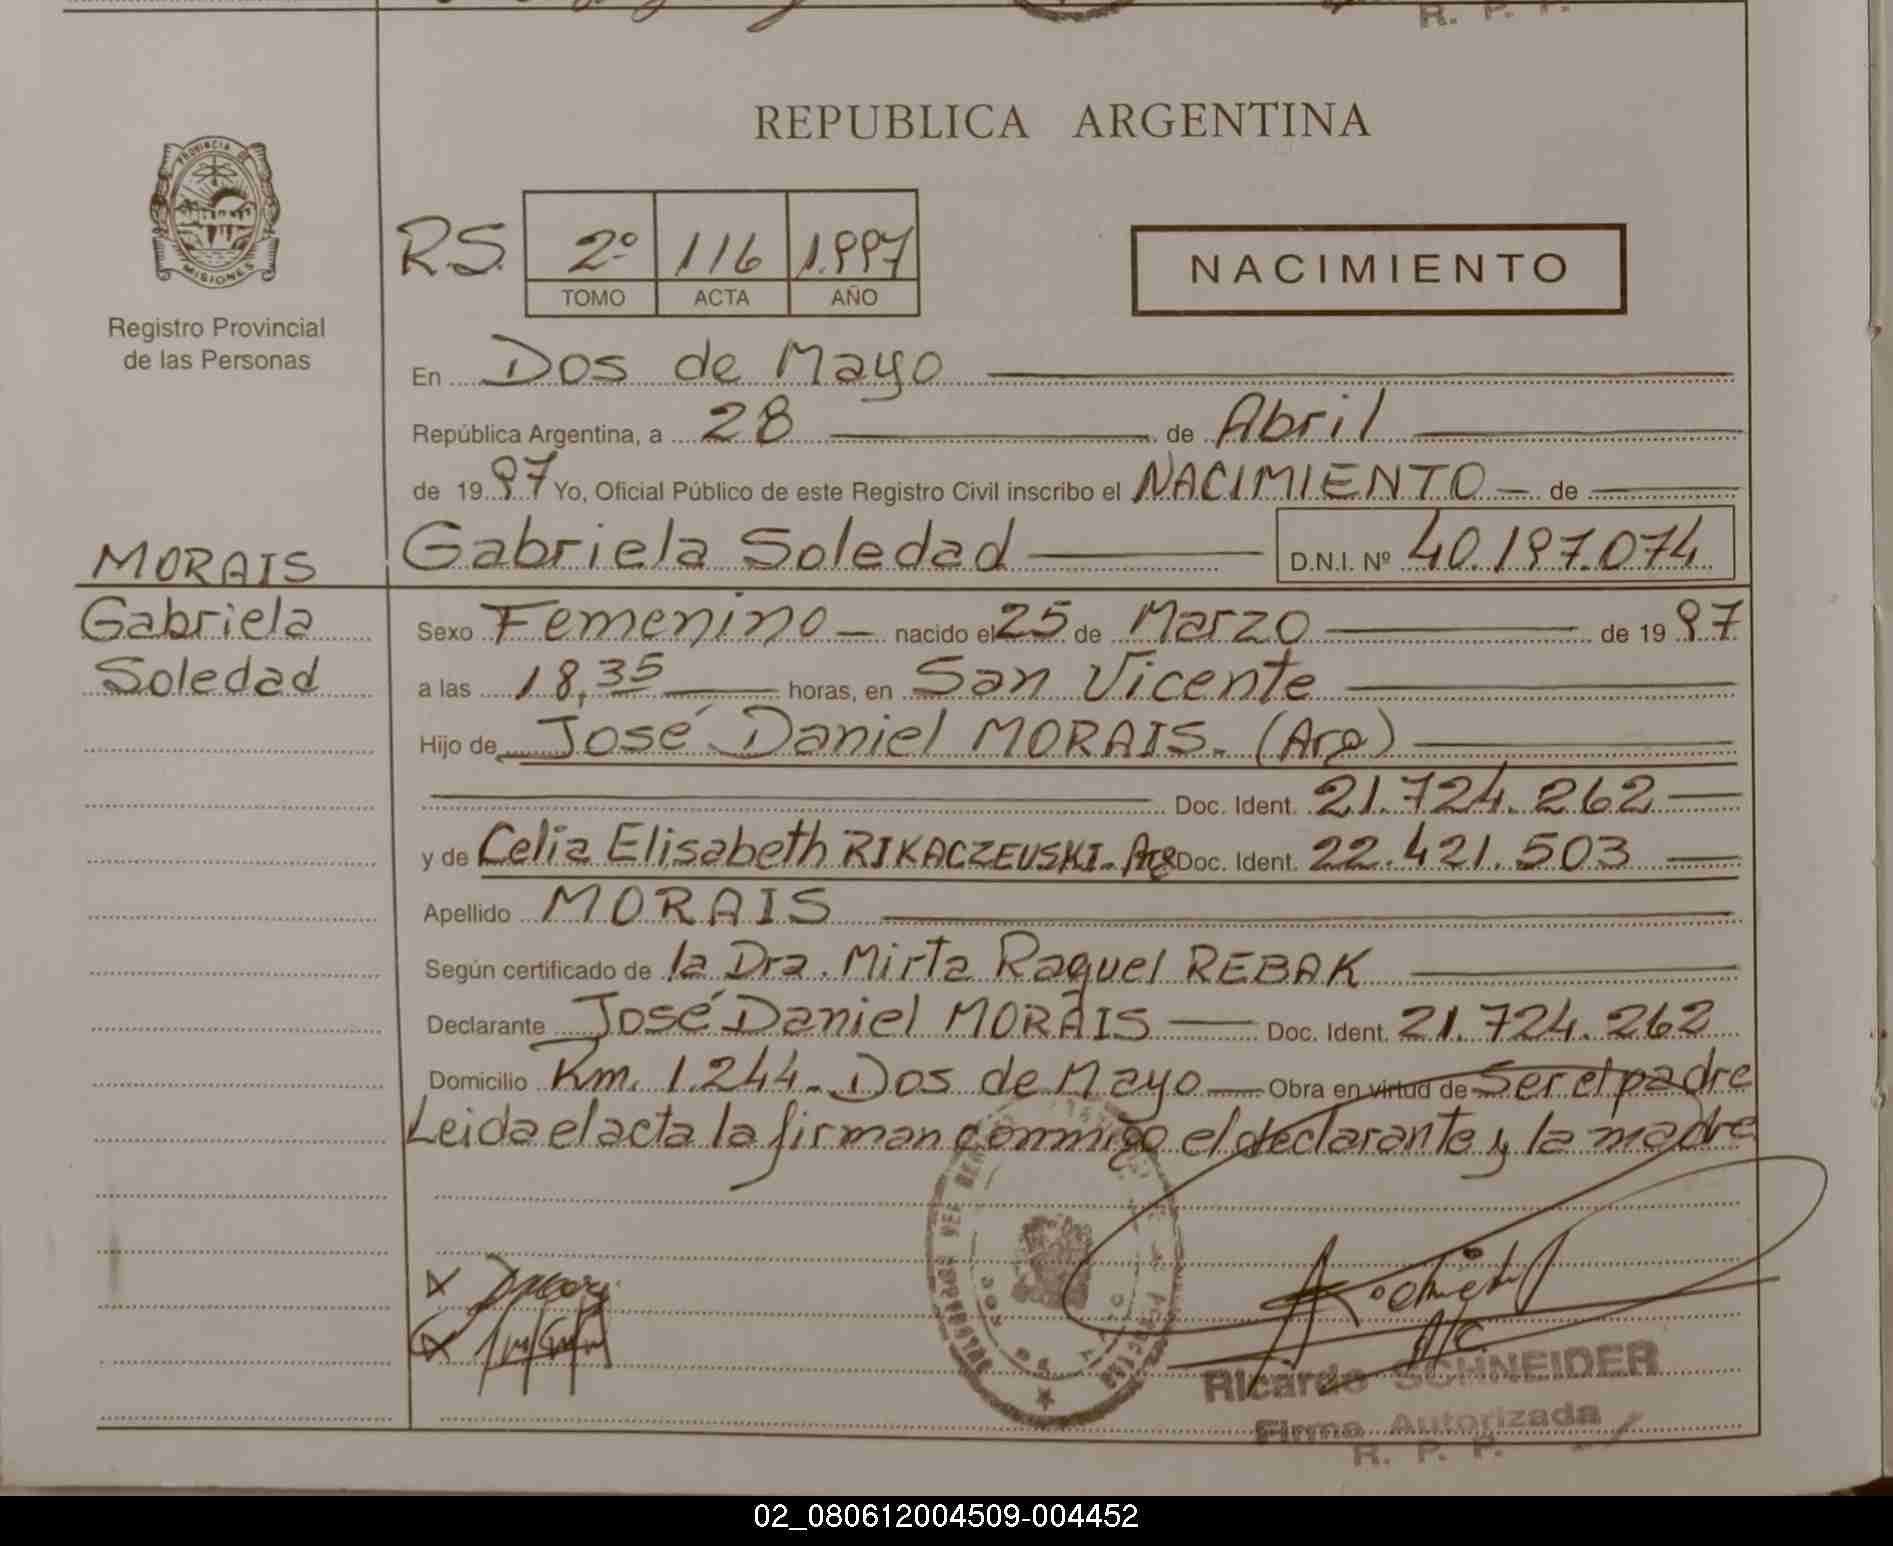 R. P. P.
REPUBLICA ARGENTINA
PROVINCIA DE
MISIONES
Registro Provincial
de las Personas
R.S. 2º 116 1.997
TOMO ACTA AÑO
NACIMIENTO
En Dos de Mayo
República Argentina, a 28 de Abril
de 1997 Yo, Oficial Público de este Registro Civil inscribo el NACIMIENTO de
MORAIS
Gabriela
Soledad
Gabriela Soledad D.N.I. Nº 40.197.074
Sexo Femenino nacido el 25 de Marzo de 1997
a las 18,35 horas, en San Vicente
Hijo de José Daniel MORAIS. (Arg)
Doc. Ident. 21.724.262
y de Celia Elisabeth RIKACZEUSKI. Arg Doc. Ident. 22.421.503
Apellido MORAIS
Según certificado de la Dra. Mirta Raquel REBAK
Declarante José Daniel MORAIS Doc. Ident. 21.724.262
Domicilio Km. 1.244. Dos de Mayo Obra en virtud de Ser el padre
Leida el acta la firman conmigo el declarante y la madre
Ricardo SCHNEIDER
Firma Autorizada
R. P. P.
02_080612004509-004452